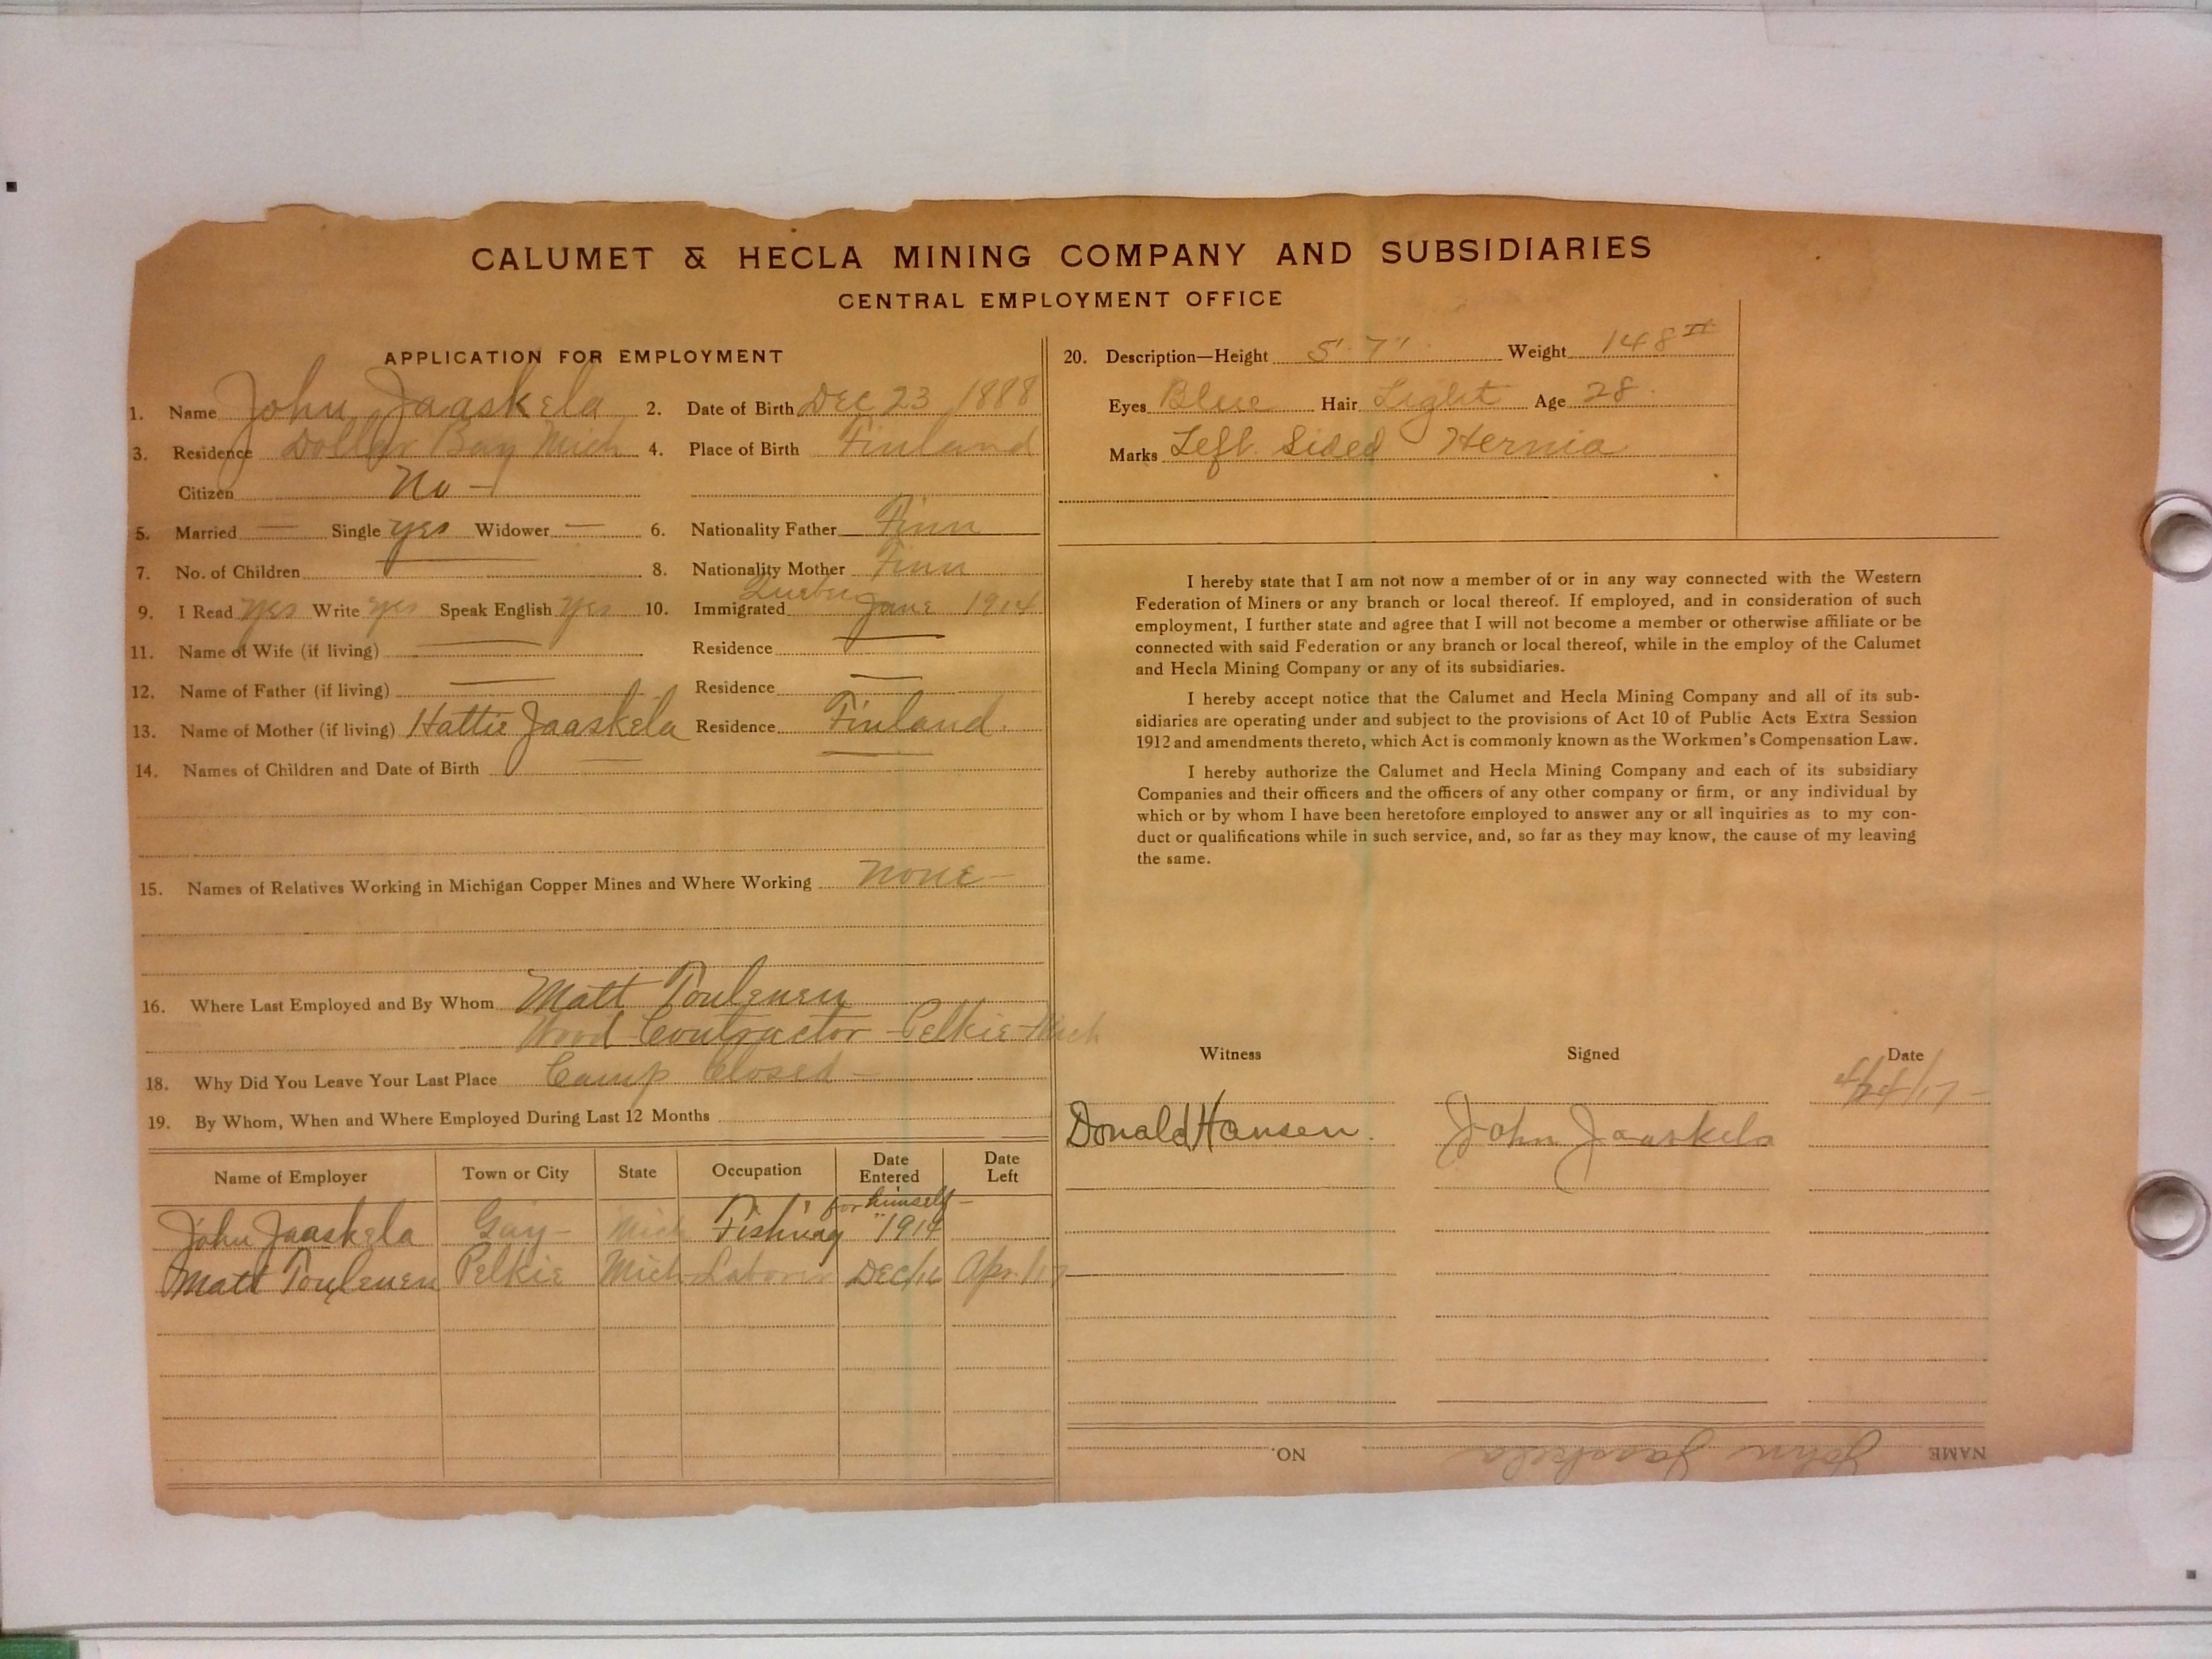 CALUMET & HECLA MINING COMPANY AND SUBSIDIARIES
CENTRAL EMPLOYMENT OFFICE
APPLICATION FOR EMPLOYMENT
1. Name John Jaaskela 2. Date of Birth Dec 23 1888
3. Residence Dollar Bay Mich 4. Place of Birth Finland
Citizen No -
5. Married — Single yes Widower — 6. Nationality Father Finn
7. No. of Children — 8. Nationality Mother Finn
9. I Read yes Write yes Speak English yes 10. Immigrated June 1914
11. Name of Wife (if living) — Residence —
12. Name of Father (if living) — Residence —
13. Name of Mother (if living) Hattie Jaaskela Residence Finland.
14. Names of Children and Date of Birth —
15. Names of Relatives Working in Michigan Copper Mines and Where Working None —
16. Where Last Employed and By Whom Matt Toulenen
Wood Contractor - Pelkie - Mich
18. Why Did You Leave Your Last Place Camp Closed —
19. By Whom, When and Where Employed During Last 12 Months
Name of Employer Town or City State Occupation Date Entered Date Left
for himself —
John Jaaskela Gay - Mich Fishing " 1914
Matt Toulenen Pelkie Mich Laborer Dec/16 Apr. /17
20. Description—Height 5' 7" Weight 148 #
Eyes Blue Hair Light Age 28
Marks Left Sided Hernia
I hereby state that I am not now a member of or in any way connected with the Western
Federation of Miners or any branch or local thereof. If employed, and in consideration of such
employment, I further state and agree that I will not become a member or otherwise affiliate or be
connected with said Federation or any branch or local thereof, while in the employ of the Calumet
and Hecla Mining Company or any of its subsidiaries.
I hereby accept notice that the Calumet and Hecla Mining Company and all of its sub-
sidiaries are operating under and subject to the provisions of Act 10 of Public Acts Extra Session
1912 and amendments thereto, which Act is commonly known as the Workmen's Compensation Law.
I hereby authorize the Calumet and Hecla Mining Company and each of its subsidiary
Companies and their officers and the officers of any other company or firm, or any individual by
which or by whom I have been heretofore employed to answer any or all inquiries as to my con-
duct or qualifications while in such service, and, so far as they may know, the cause of my leaving
the same.
Witness Signed Date
4/24/17 -
Donald Hansen. John Jaaskela
NAME John Jaaskela NO.